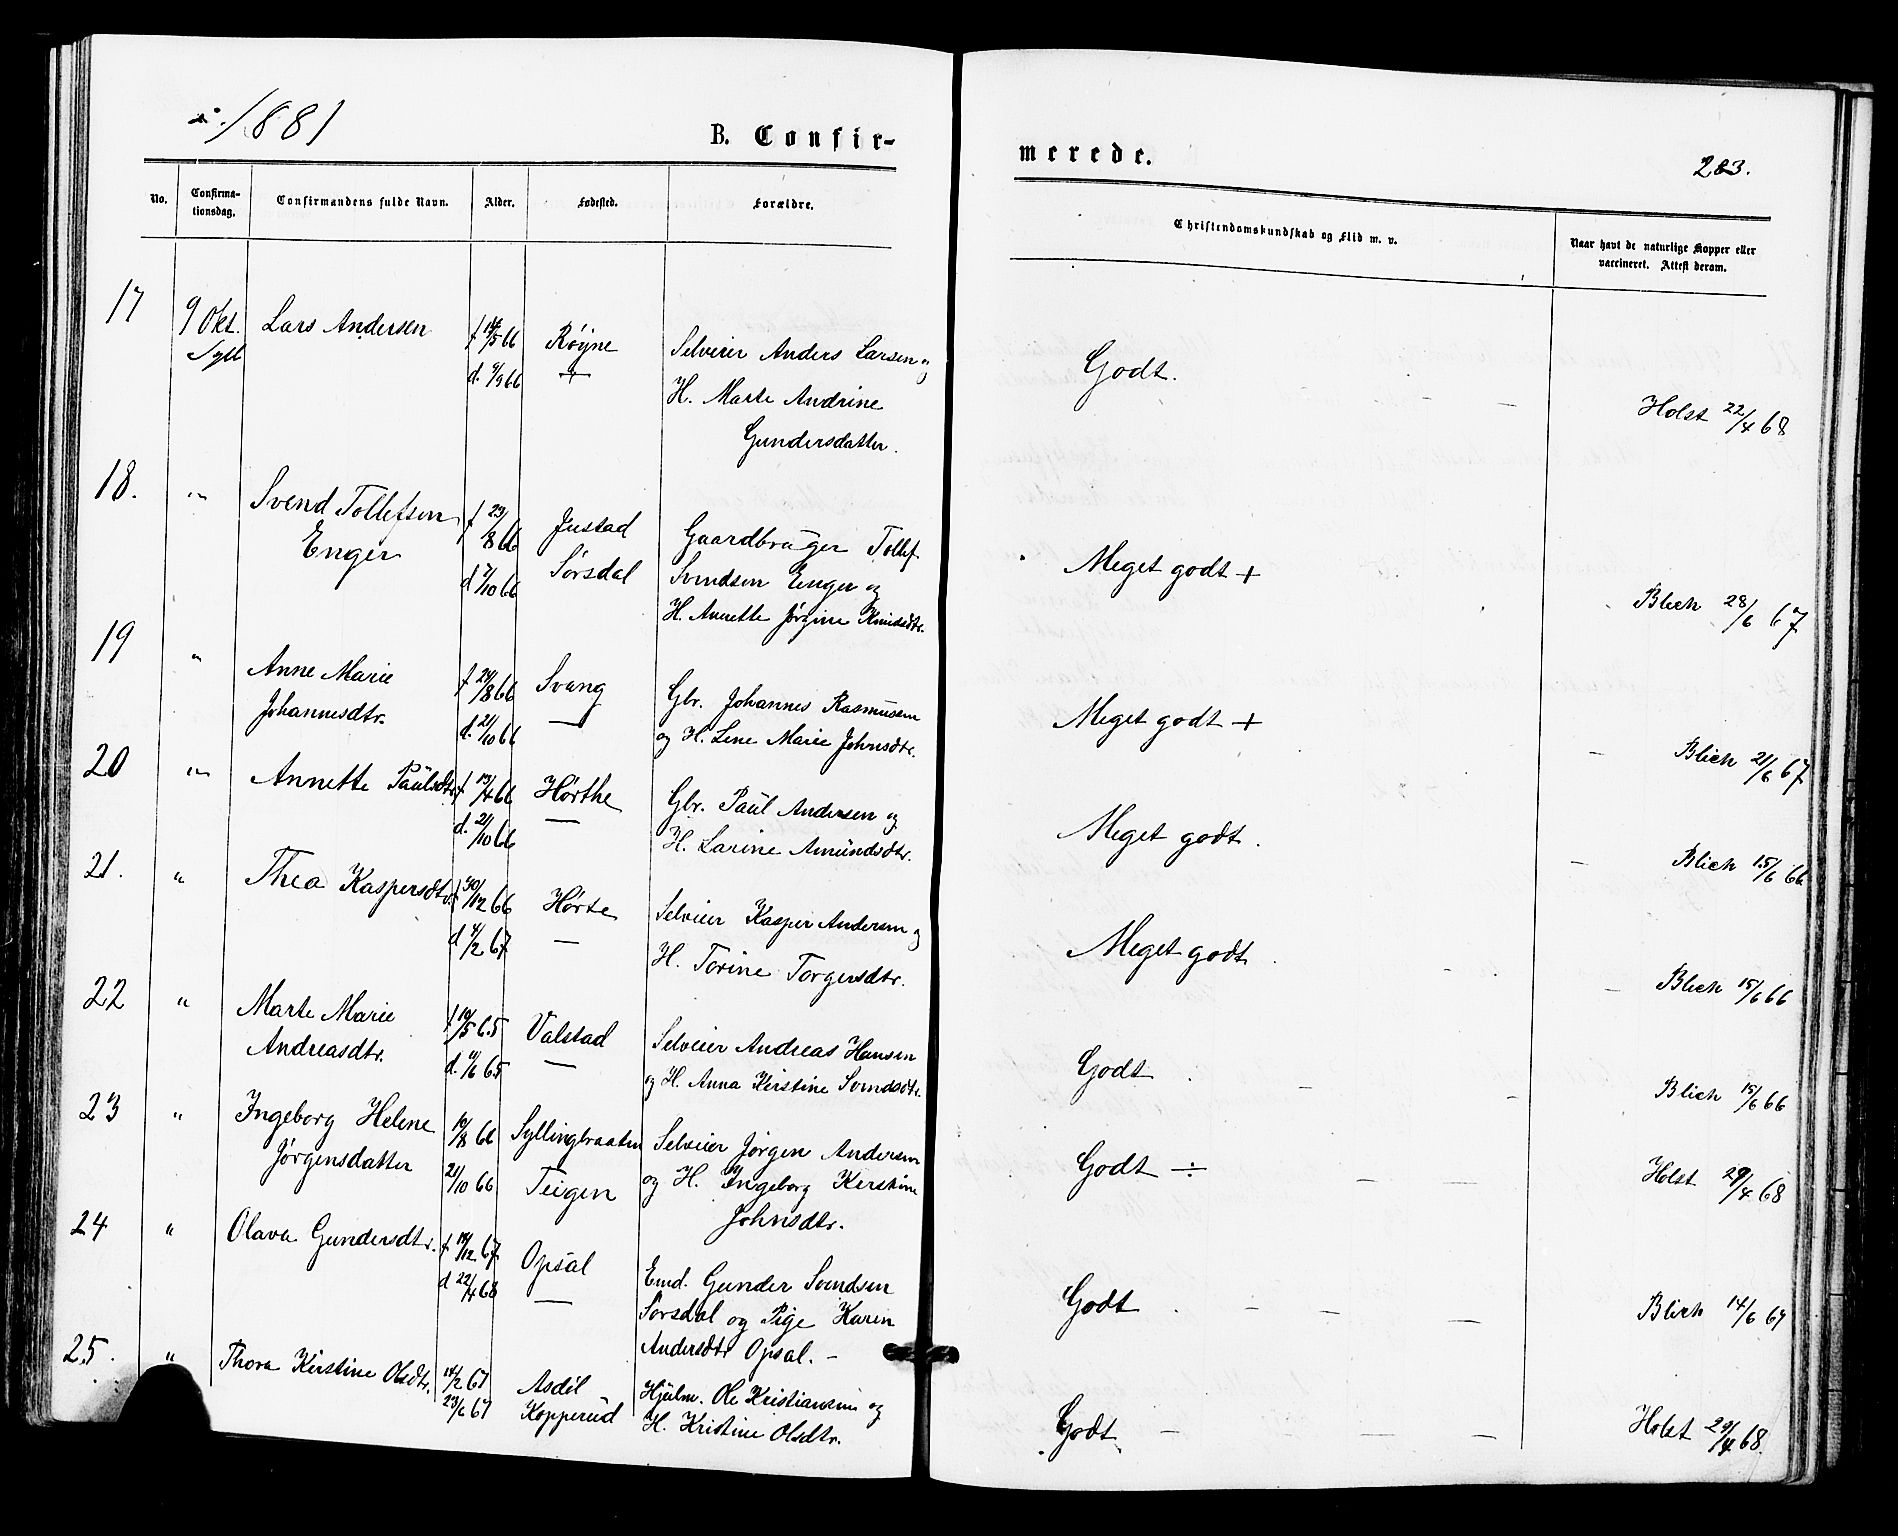 i 1881
B. Confir-
merede.
203.
No.
Confirma-
tionsdag.
Confirmandens fulde Navn.
Alder.
Fødested.
Forældre.
Christendomskundskab og Flid m. v.
Naar havt de naturlige Kopper eller
vaccineret. Attest derom.
17 9 Okt. Lars Andersen f 14/5 66 Røyne Selveier Anders Larsen og
Syll d. 9/9 66 H. Marte Andrine
Gundersdatter.
Godt. — —
Holst 22/4 68
18. " Svend Tollefsen f 23/8 66 Justad Gaardbruger Tollef
Enger d 7/10 66 Sørsdal Svendsen Enger og
H. Annette Jørgine Knudsdtr.
Meget godt +
Blich 28/6 67
19 " Anne Marie f 24/8 66 Svang Gbr. Johannes Rasmussen
Johannesdtr. d. 21/10 66 — og H. Lene Marie Johnsdtr.
Meget godt +
Blich 21/6 67
20 " Annette Paulsdtr. f 13/4 66 Hørthe Gbr. Paul Andersen og
d. 21/10 66 — H. Larine Amundsdtr.
Meget godt.
Blich 15/6 66
21. " Thea Kaspersdtr. f 30/12 66 Hørte Selveier Kasper Andersen og
d /2 67 — H. Torine Torgersdtr.
Meget godt
Blich 15/6 66
22 " Marte Marie f 14/5 65 Valstad Selveier Andreas Hansen
Andreasdtr. d. 11/6 65 — og H. Anna Kirstine Svendsdtr.
Godt . — -
Blich 15/6 66
23 " Ingeborg Helene 10/8 66 Syllingbraaten Selveier Jørgen Andersen
Jørgensdatter 21/10 66 Teigen og H. Ingeborg Kirstine
Johnsdtr.
Godt ÷ — —
Holst 29/4 68
24 " Olava Gundersdtr. f 14/12 67 Opsal Emd. Gunder Svendsen
d 22/4 68 — Sørsdal og Pige Karen
Andersdtr Opsal. –
Godt . — — —
Blich 14/6 67
25. " Thora Kirstine Olsdtr. 14/2 67 Asdøl Hjulm. Ole Kristiansen og
23/6 67 Kopperud H. Kristine Olsdtr.
Godt — — —
Holst 29/4 68.